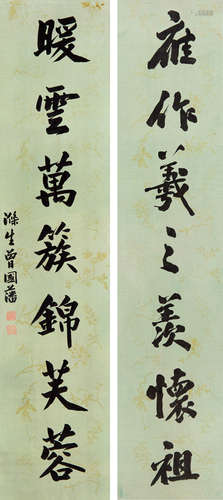 應作羲之羨懷祖
暖雲萬簇錦芙蓉
滌生曾國藩